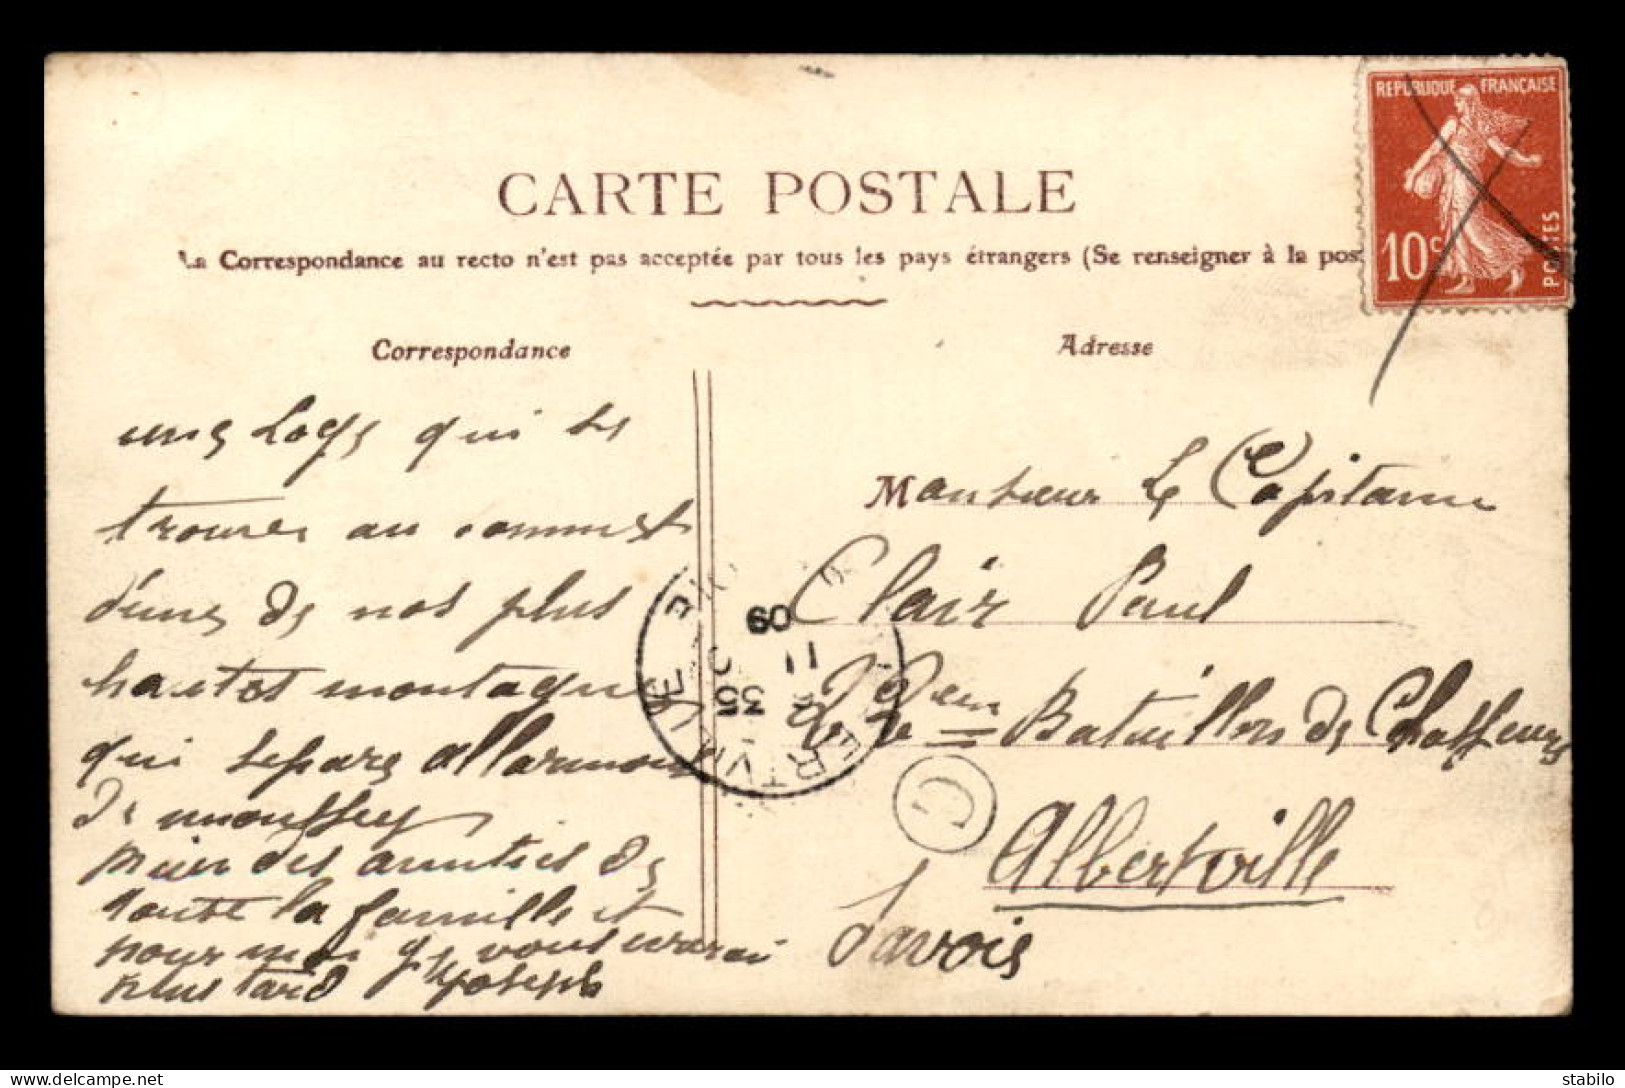 CARTE POSTALE
La Correspondance au recto n'est pas acceptée par tous les pays étrangers (Se renseigner à la post
REPUBLIQUE FRANÇAISE
10c
POSTES
Correspondance
Adresse
une Loge qui se
trouve au sommet
d'une de nos plus
hautes montagne
qui separe allarmont
de moussey
des amitiés de
toute la famille et
pour moi je vous
plus tard Joseph
Monsieur Le Capitaine
Clair Paul
22eme Bataillon de Chasseurs
Albertville
Savoie
ALBERTVILLE
11
35
09
C
stabilo